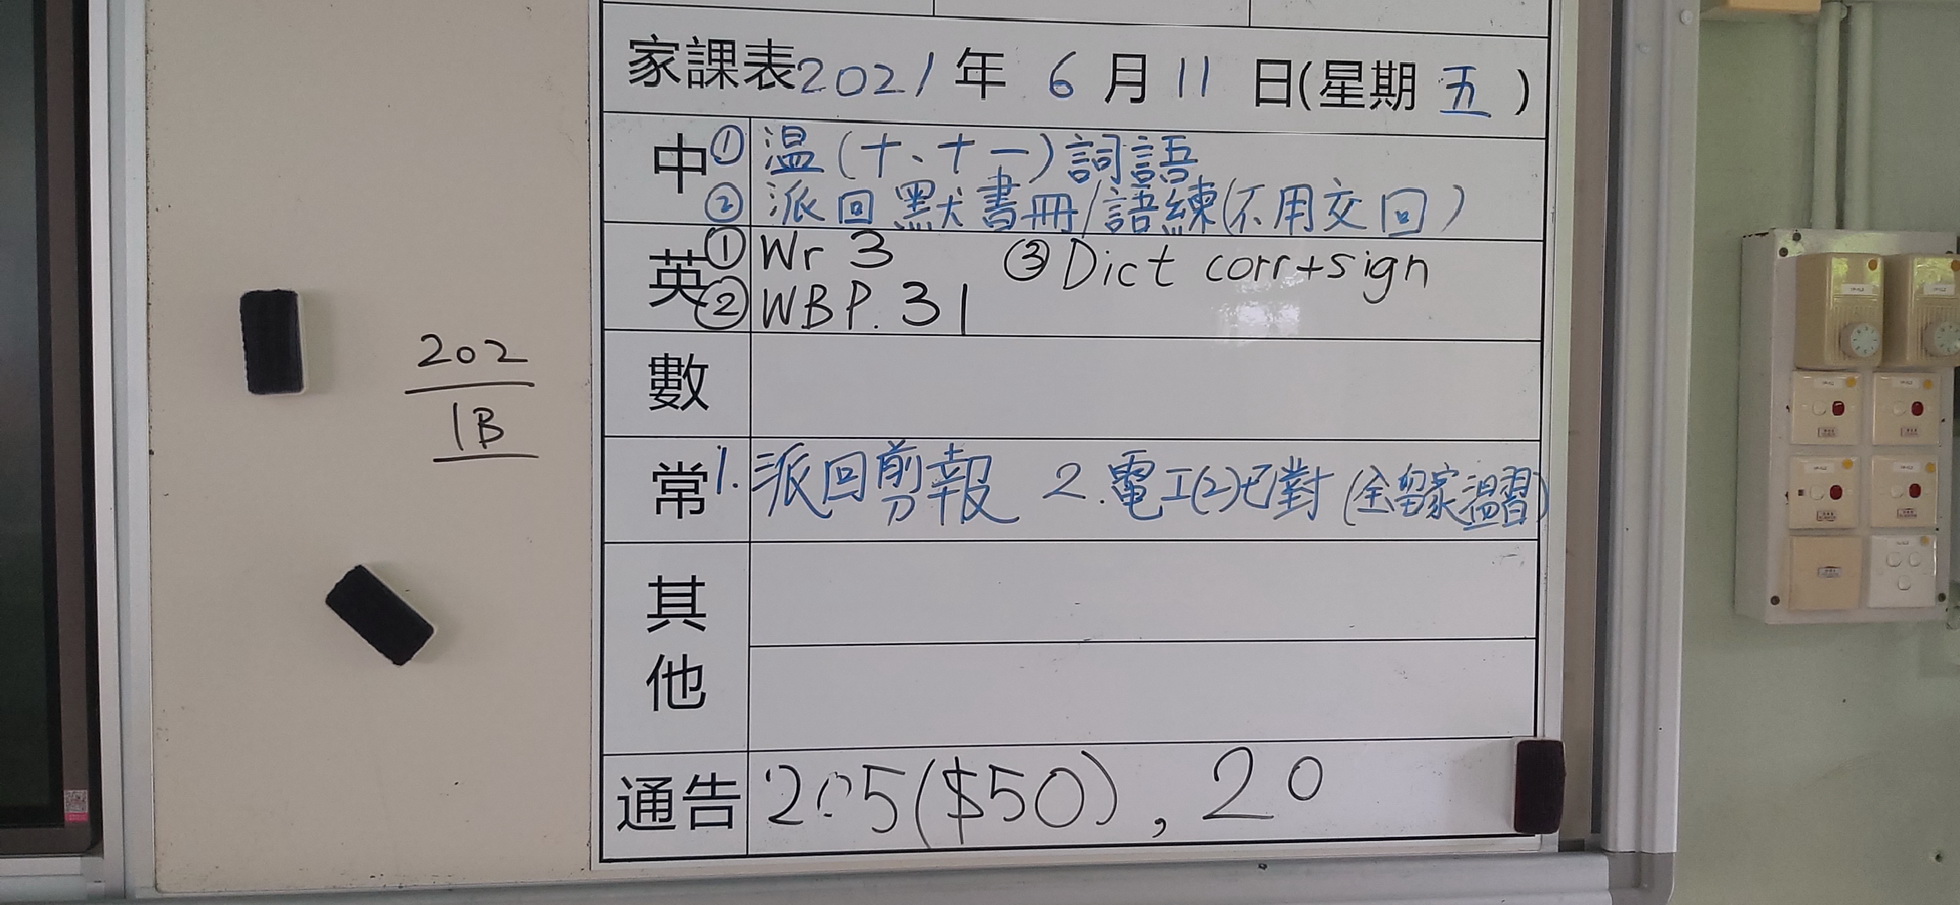 家課表2021年 6月11日(星期五)
中① 温(十、十一)詞語
② 派回默書冊/語練(不用交回)
英① Wr 3 ③Dict corr+sign
② WBP.31
數
常1.派回剪報 2.電工(2)已對(全留家溫習)
其
他
通告 205($50), 20
202
1B